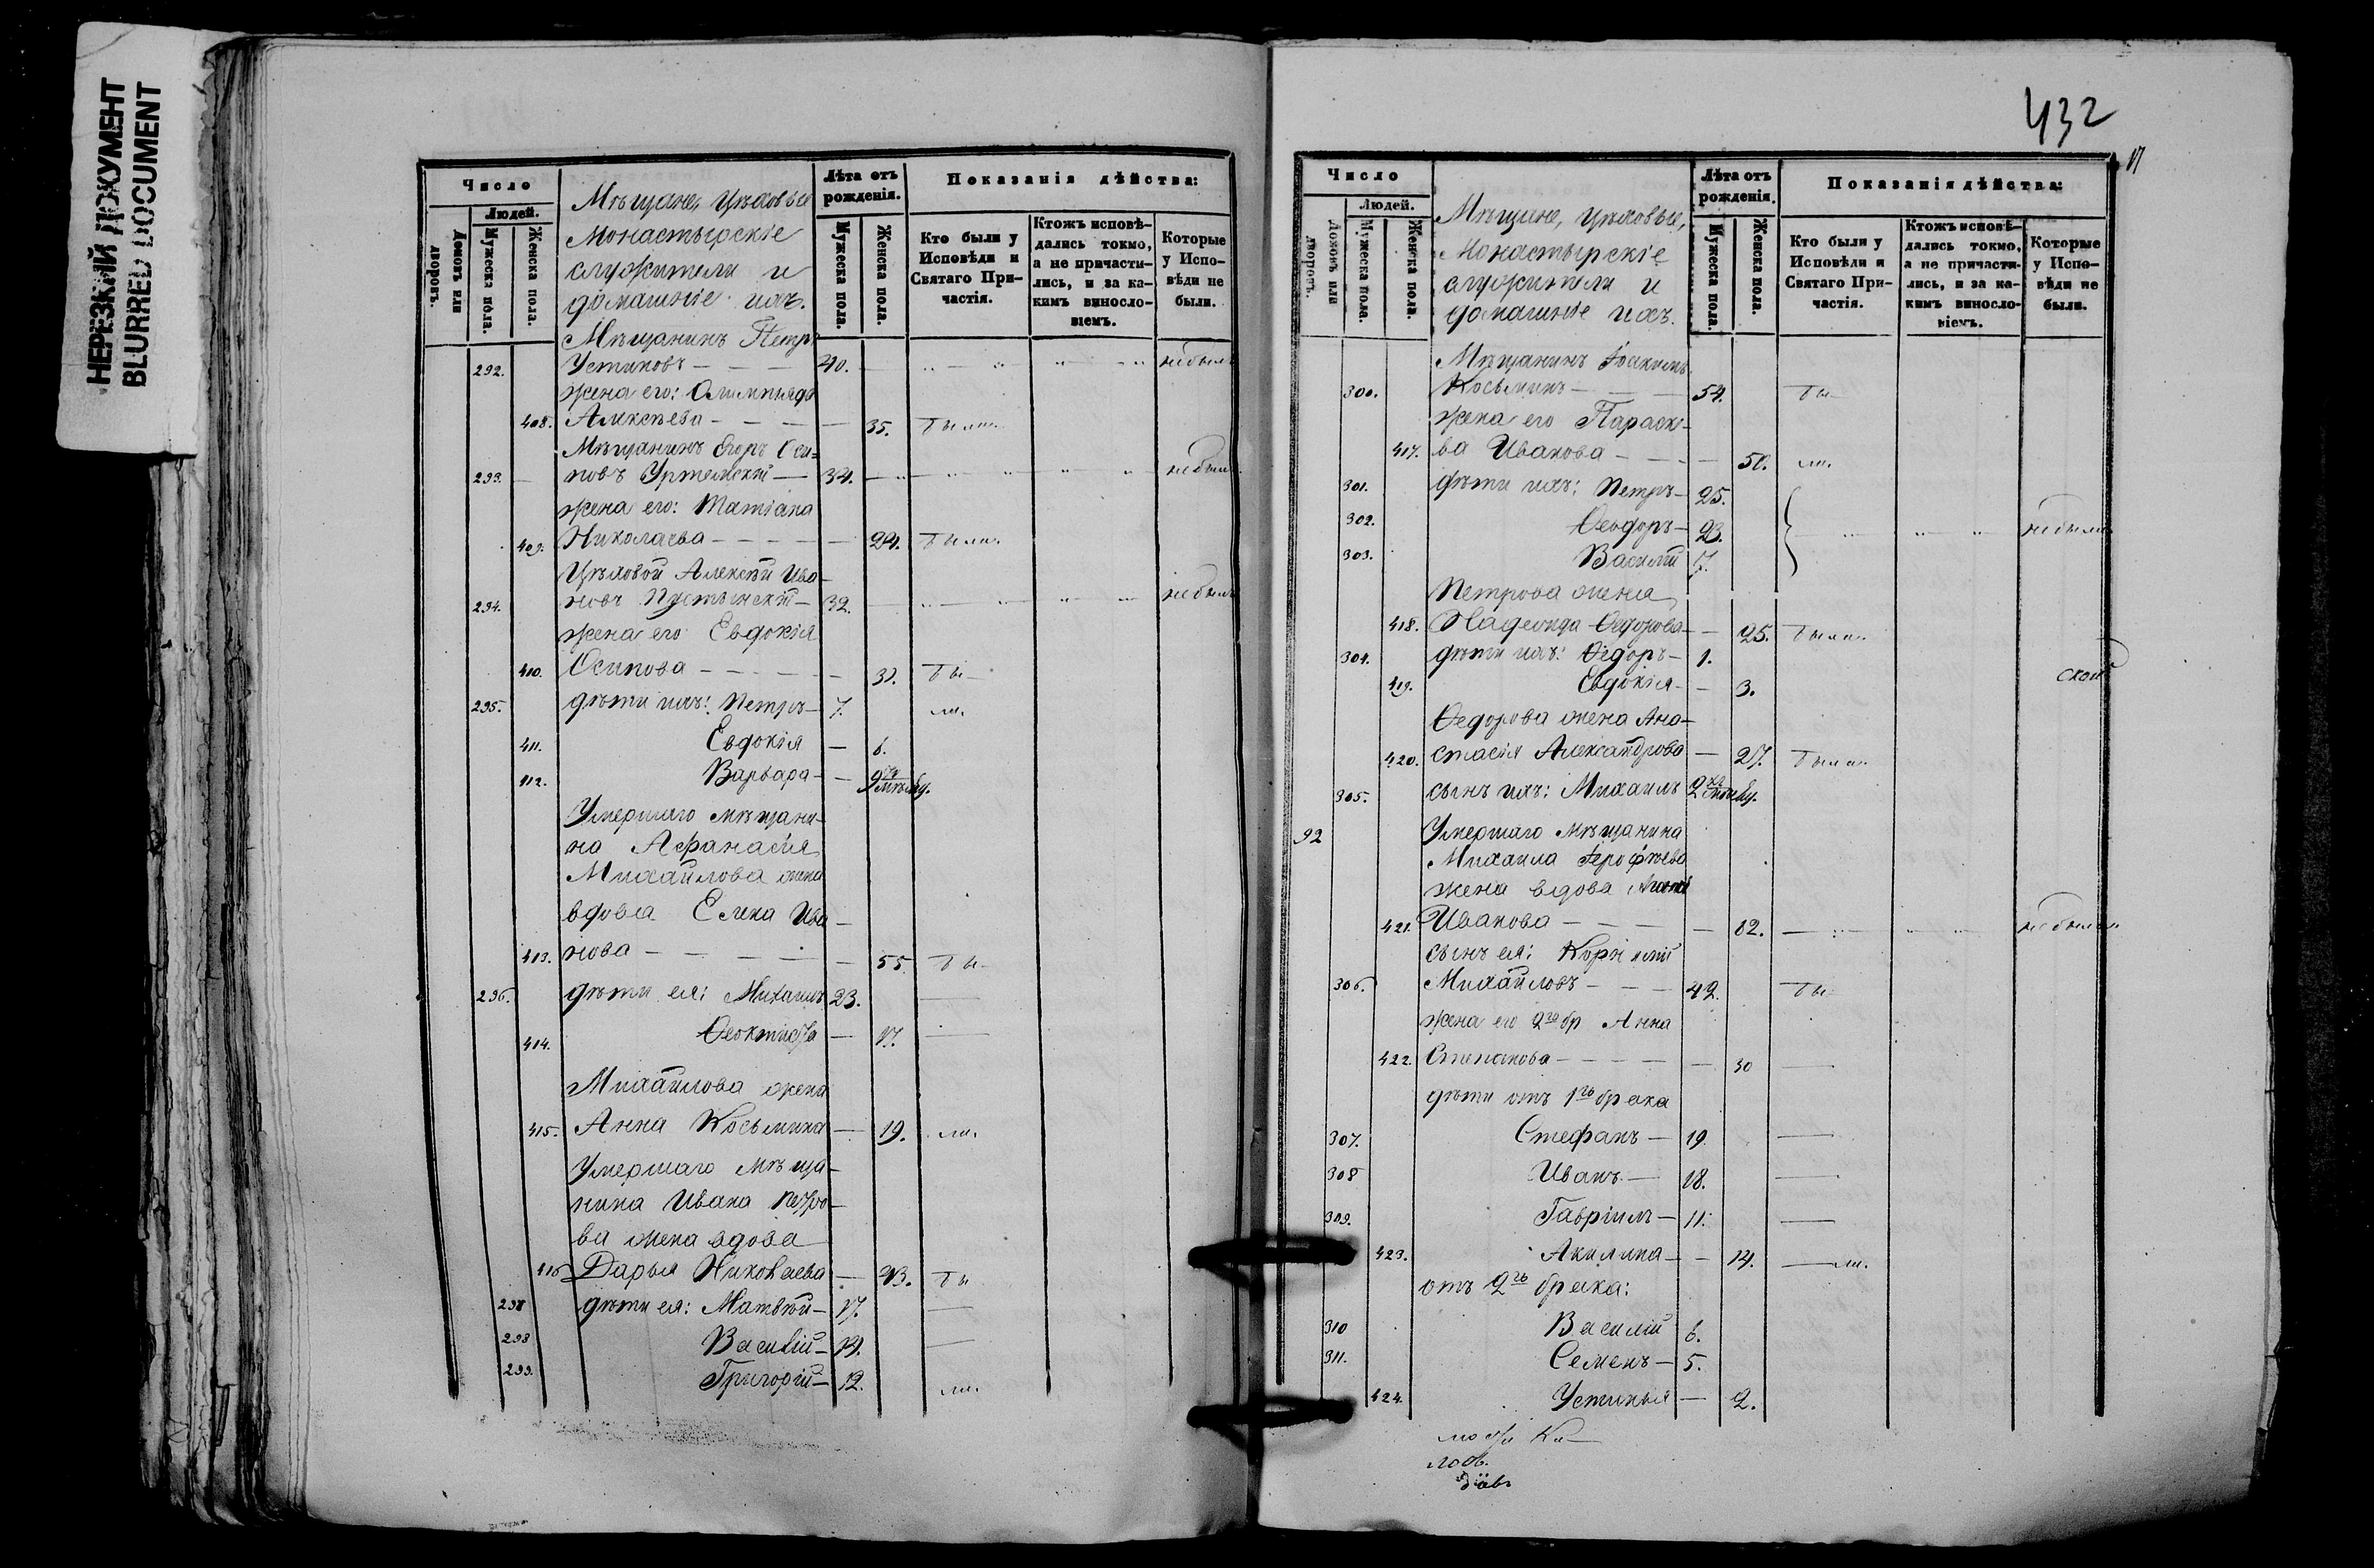 НЕРЕЗКИЙ ДОКУМЕНТ
BLURRED DOCUMENT
Число
Людей.
Домовъ или дворовъ.
Мужеска пола.
Женска пола.
Мѣщане, цѣховые
монастырскіе
служители и
домашніе ихъ.
Лѣта отъ рожденія.
Мужеска пола.
Женска пола.
Показанія дѣйства:
Кто были у Исповѣди и Святаго При-частія.
Ктожъ исповѣ-дались токмо, а не причасти-лись, и за ка-кимъ виносло-віемъ.
Которые у Испо-вѣди не были.
Мѣщанинъ Петръ
292. Устиновъ — — — 40. небылъ
жена его: Олимпіяда
408. Алексѣева — — — — 35. были
Мѣщанинъ Егоръ Оси-
293. повъ — 34. небылъ
жена его: Татіана
409. Николаева — — — — 29. были
Цѣховой Алексѣй Ива-
294. новъ Пустынскій — 32. небылъ
жена его Евдокія
410. Осипова — — — — бы
295. дѣти ихъ: Петръ — 7. ли.
411. Евдокія — 6.
412. Варвара —
Умершаго мѣщани-
на Аѳанасія
Михайлова жена
вдова Елена Ива-
413. нова — — — — 55. бы
296. дѣти ея: Михаилъ 23. —
414. Ѳеоктиста — 17. —
Михайлова жена
415. Анна Косьмина — 19. ли.
Умершаго мѣща-
нина Ивана Петро-
ва жена вдова
416 Дарья Николаева — 43. бы
дѣти ея: Матвѣй — 17. —
298 Василій — 14. —
299. Григорій — 12. ли.
432
17
Число
Людей.
Домовъ или дворовъ.
Мужеска пола.
Женска пола.
Мѣщане, цѣховые,
монастырскіе
служители и
домашніе ихъ.
Лѣта отъ рожденія.
Мужеска пола.
Женска пола.
Показанія дѣйства:
Кто были у Исповѣди и Святаго При-частія.
Ктожъ исповѣ-дались токмо, а не причасти-лись, и за ка-кимъ виносло-віемъ.
Которые у Испо-вѣди не были.
Мѣщанинъ Іоакимъ
300. Косьминъ — — — 54. бы
жена его Параске-
417. ва Иванова — — — 50. ли.
301. дѣти ихъ: Петръ — 25.
302. Ѳеодоръ — 23. небыли
303. Василій 17.
Петрова жена
418. Надежда Ѳедорова — 25. были
304. дѣти ихъ: Ѳедоръ — 1.
419. Евдокія — 3.
Ѳедорова жена Ана-
420. стасія Александрова — 27. были
305. сынъ ихъ: Михаилъ
92 Умершаго мѣщанина
Михаила Іероѳѣева
жена вдова
421. Иванова — — — — 82. небыла
сынъ ея: Корнилій
306. Михайловъ — — — 42. бы
жена его 2го бр Анна
422. Степанова — — — — 30 —
дѣти отъ 1го брака
307. Стефанъ — 19. —
308 Иванъ — 18. —
309. Гавріилъ — 11. —
423. Акилина — 14. — ли.
отъ 2го брака:
310 Василій 6.
311. Семенъ — 5.
424. Устинья — 2.